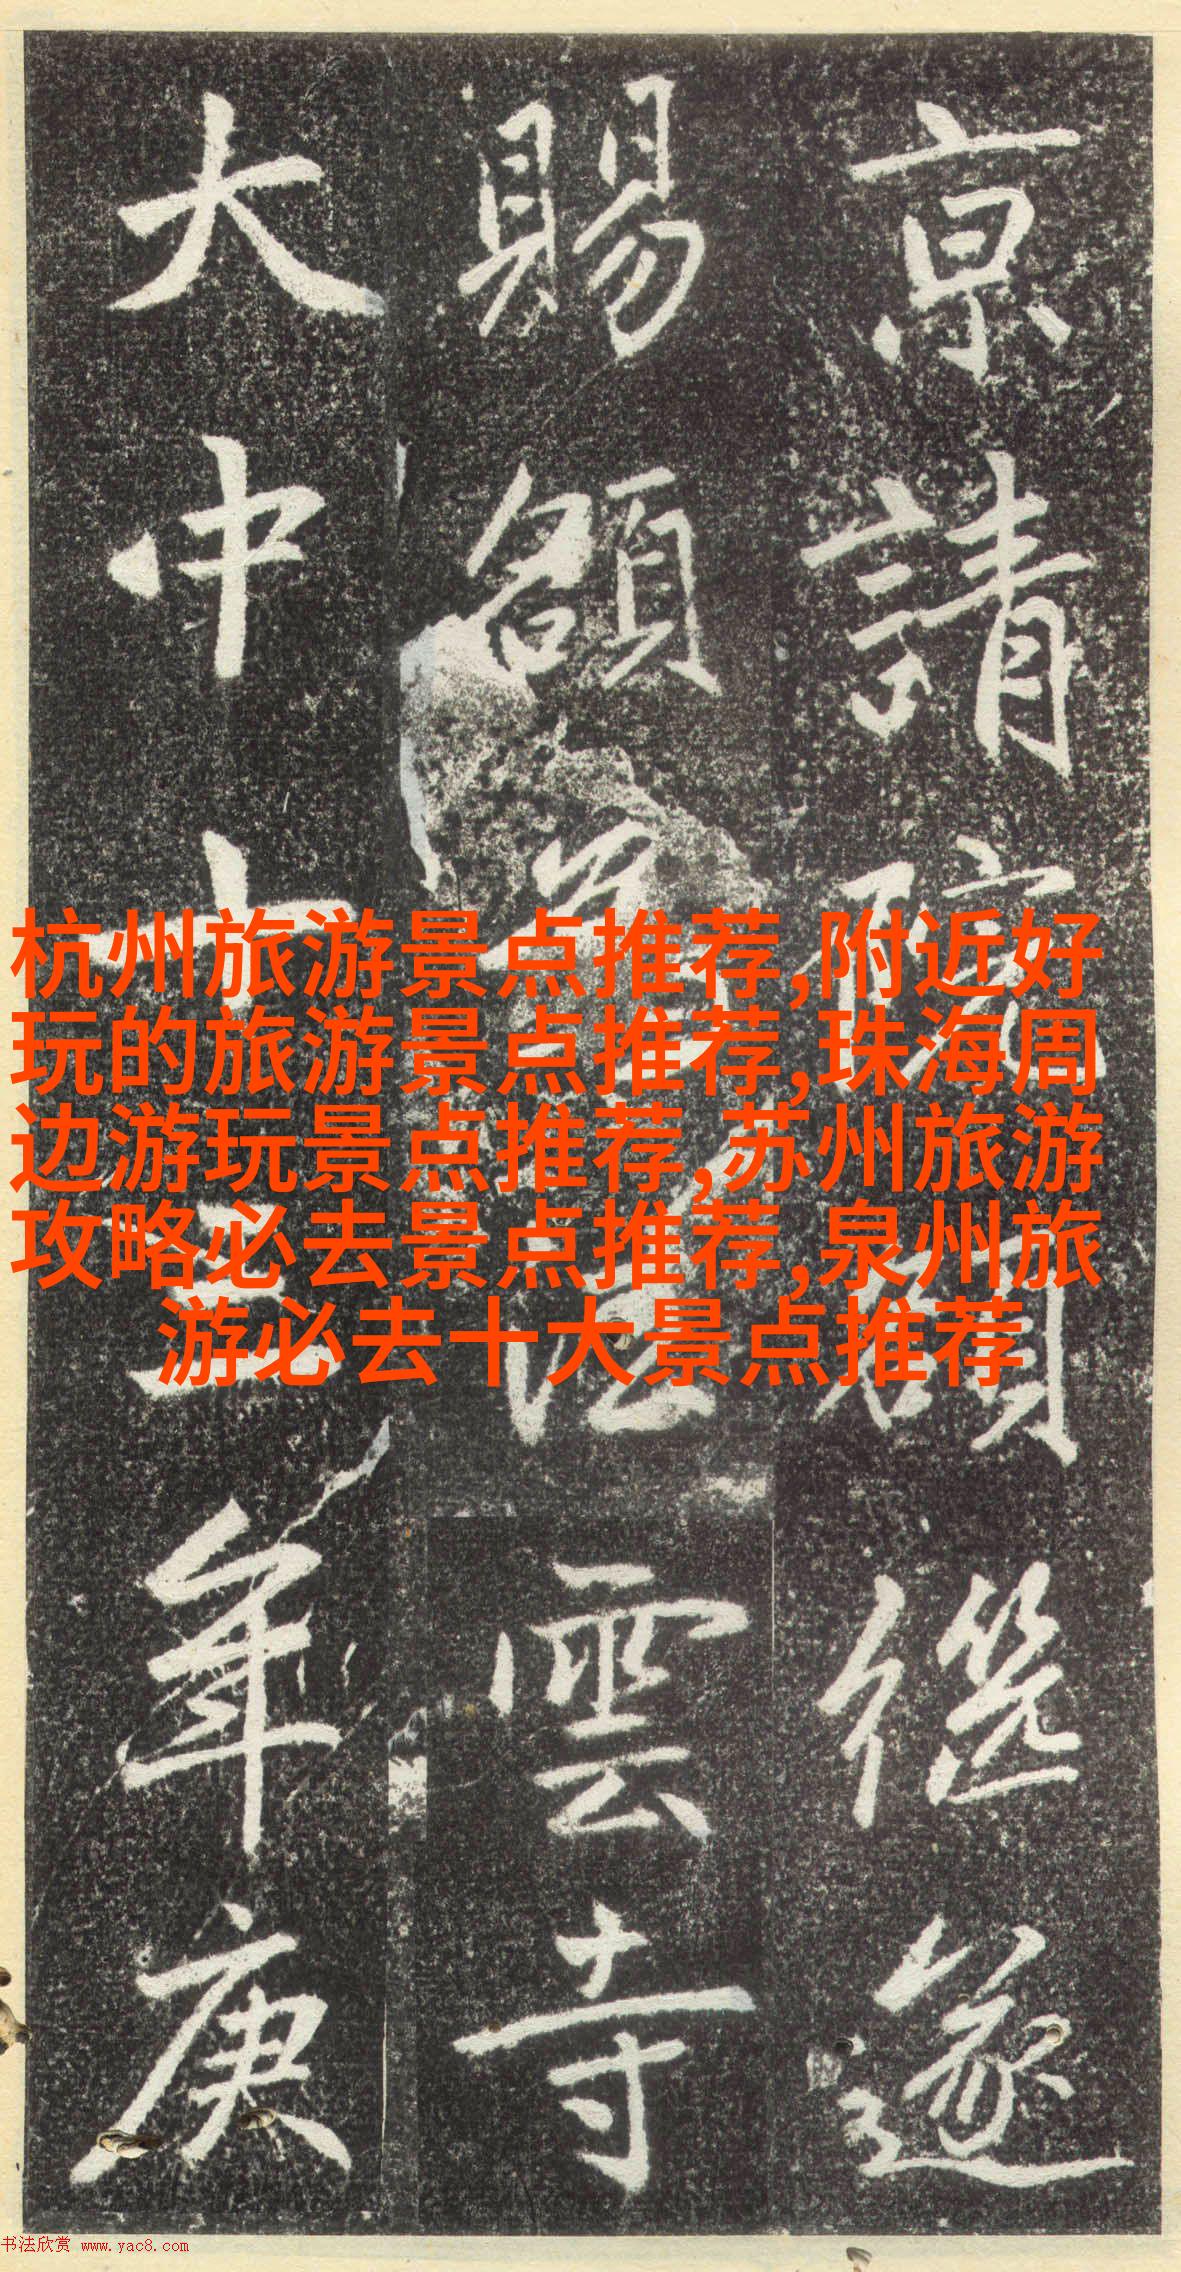 京請院額遂
賜額法雲寺
大中十年庚
杭州旅游景点推荐,附近好
玩的旅游景点推荐,珠海周
边游玩景点推荐,苏州旅游
攻略必去景点推荐,泉州旅
游必去十大景点推荐
书法欣赏 www.yac8.com